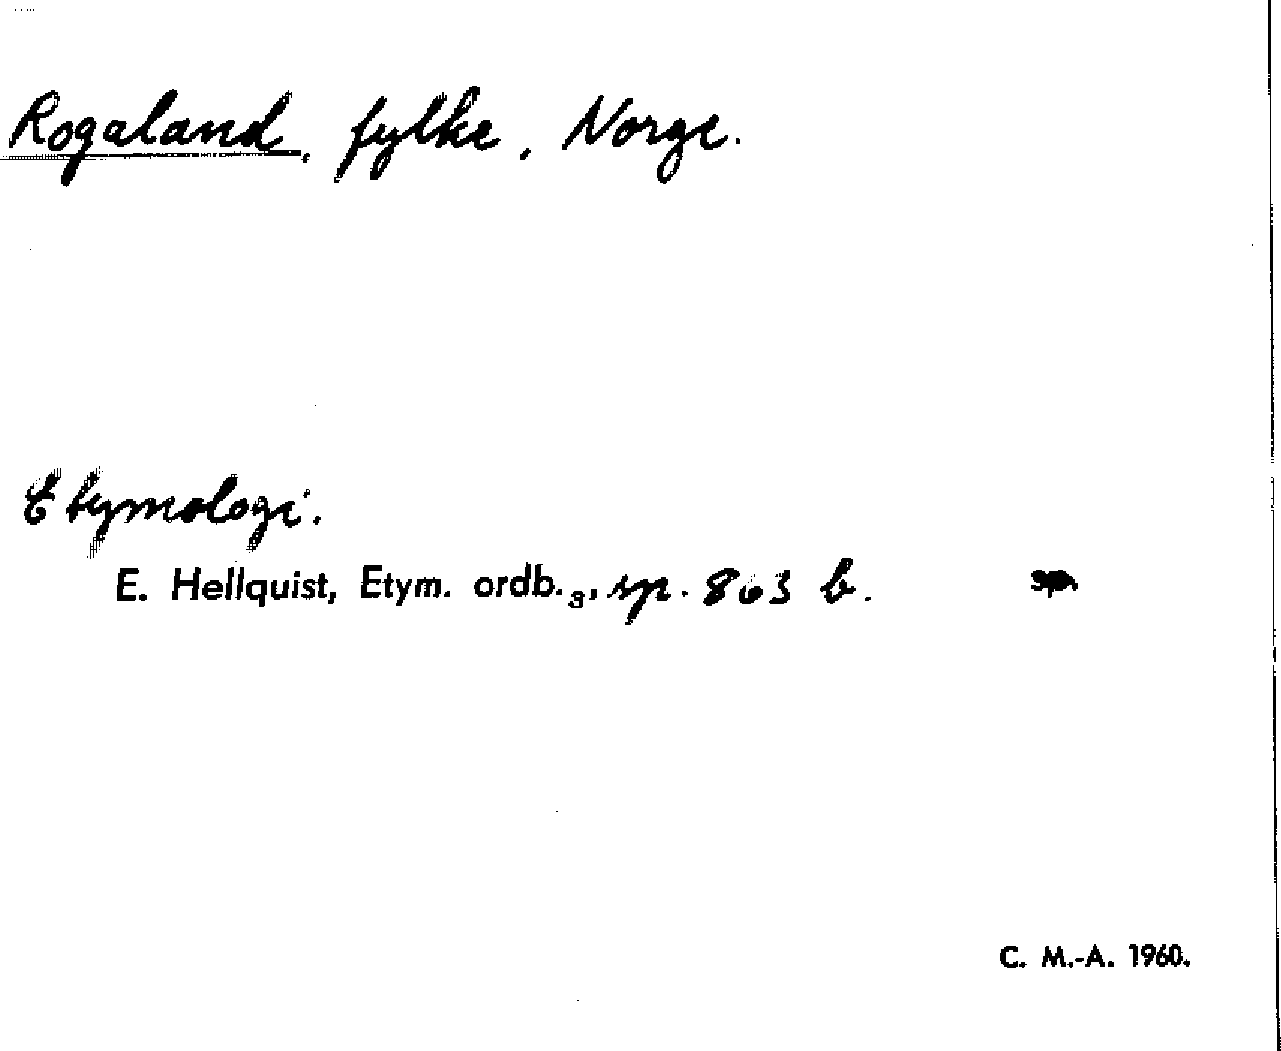 Rogaland, fylke, Norge.
Etymologi.
E. Hellquist, Etym. ordb.₃, sp. 863 b.
C. M.-A. 1960.